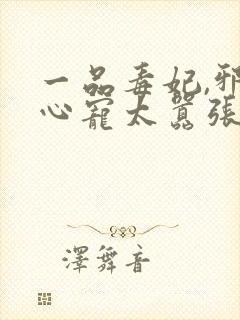 一品毒妃,邪
心寵太囂張
澤舞音